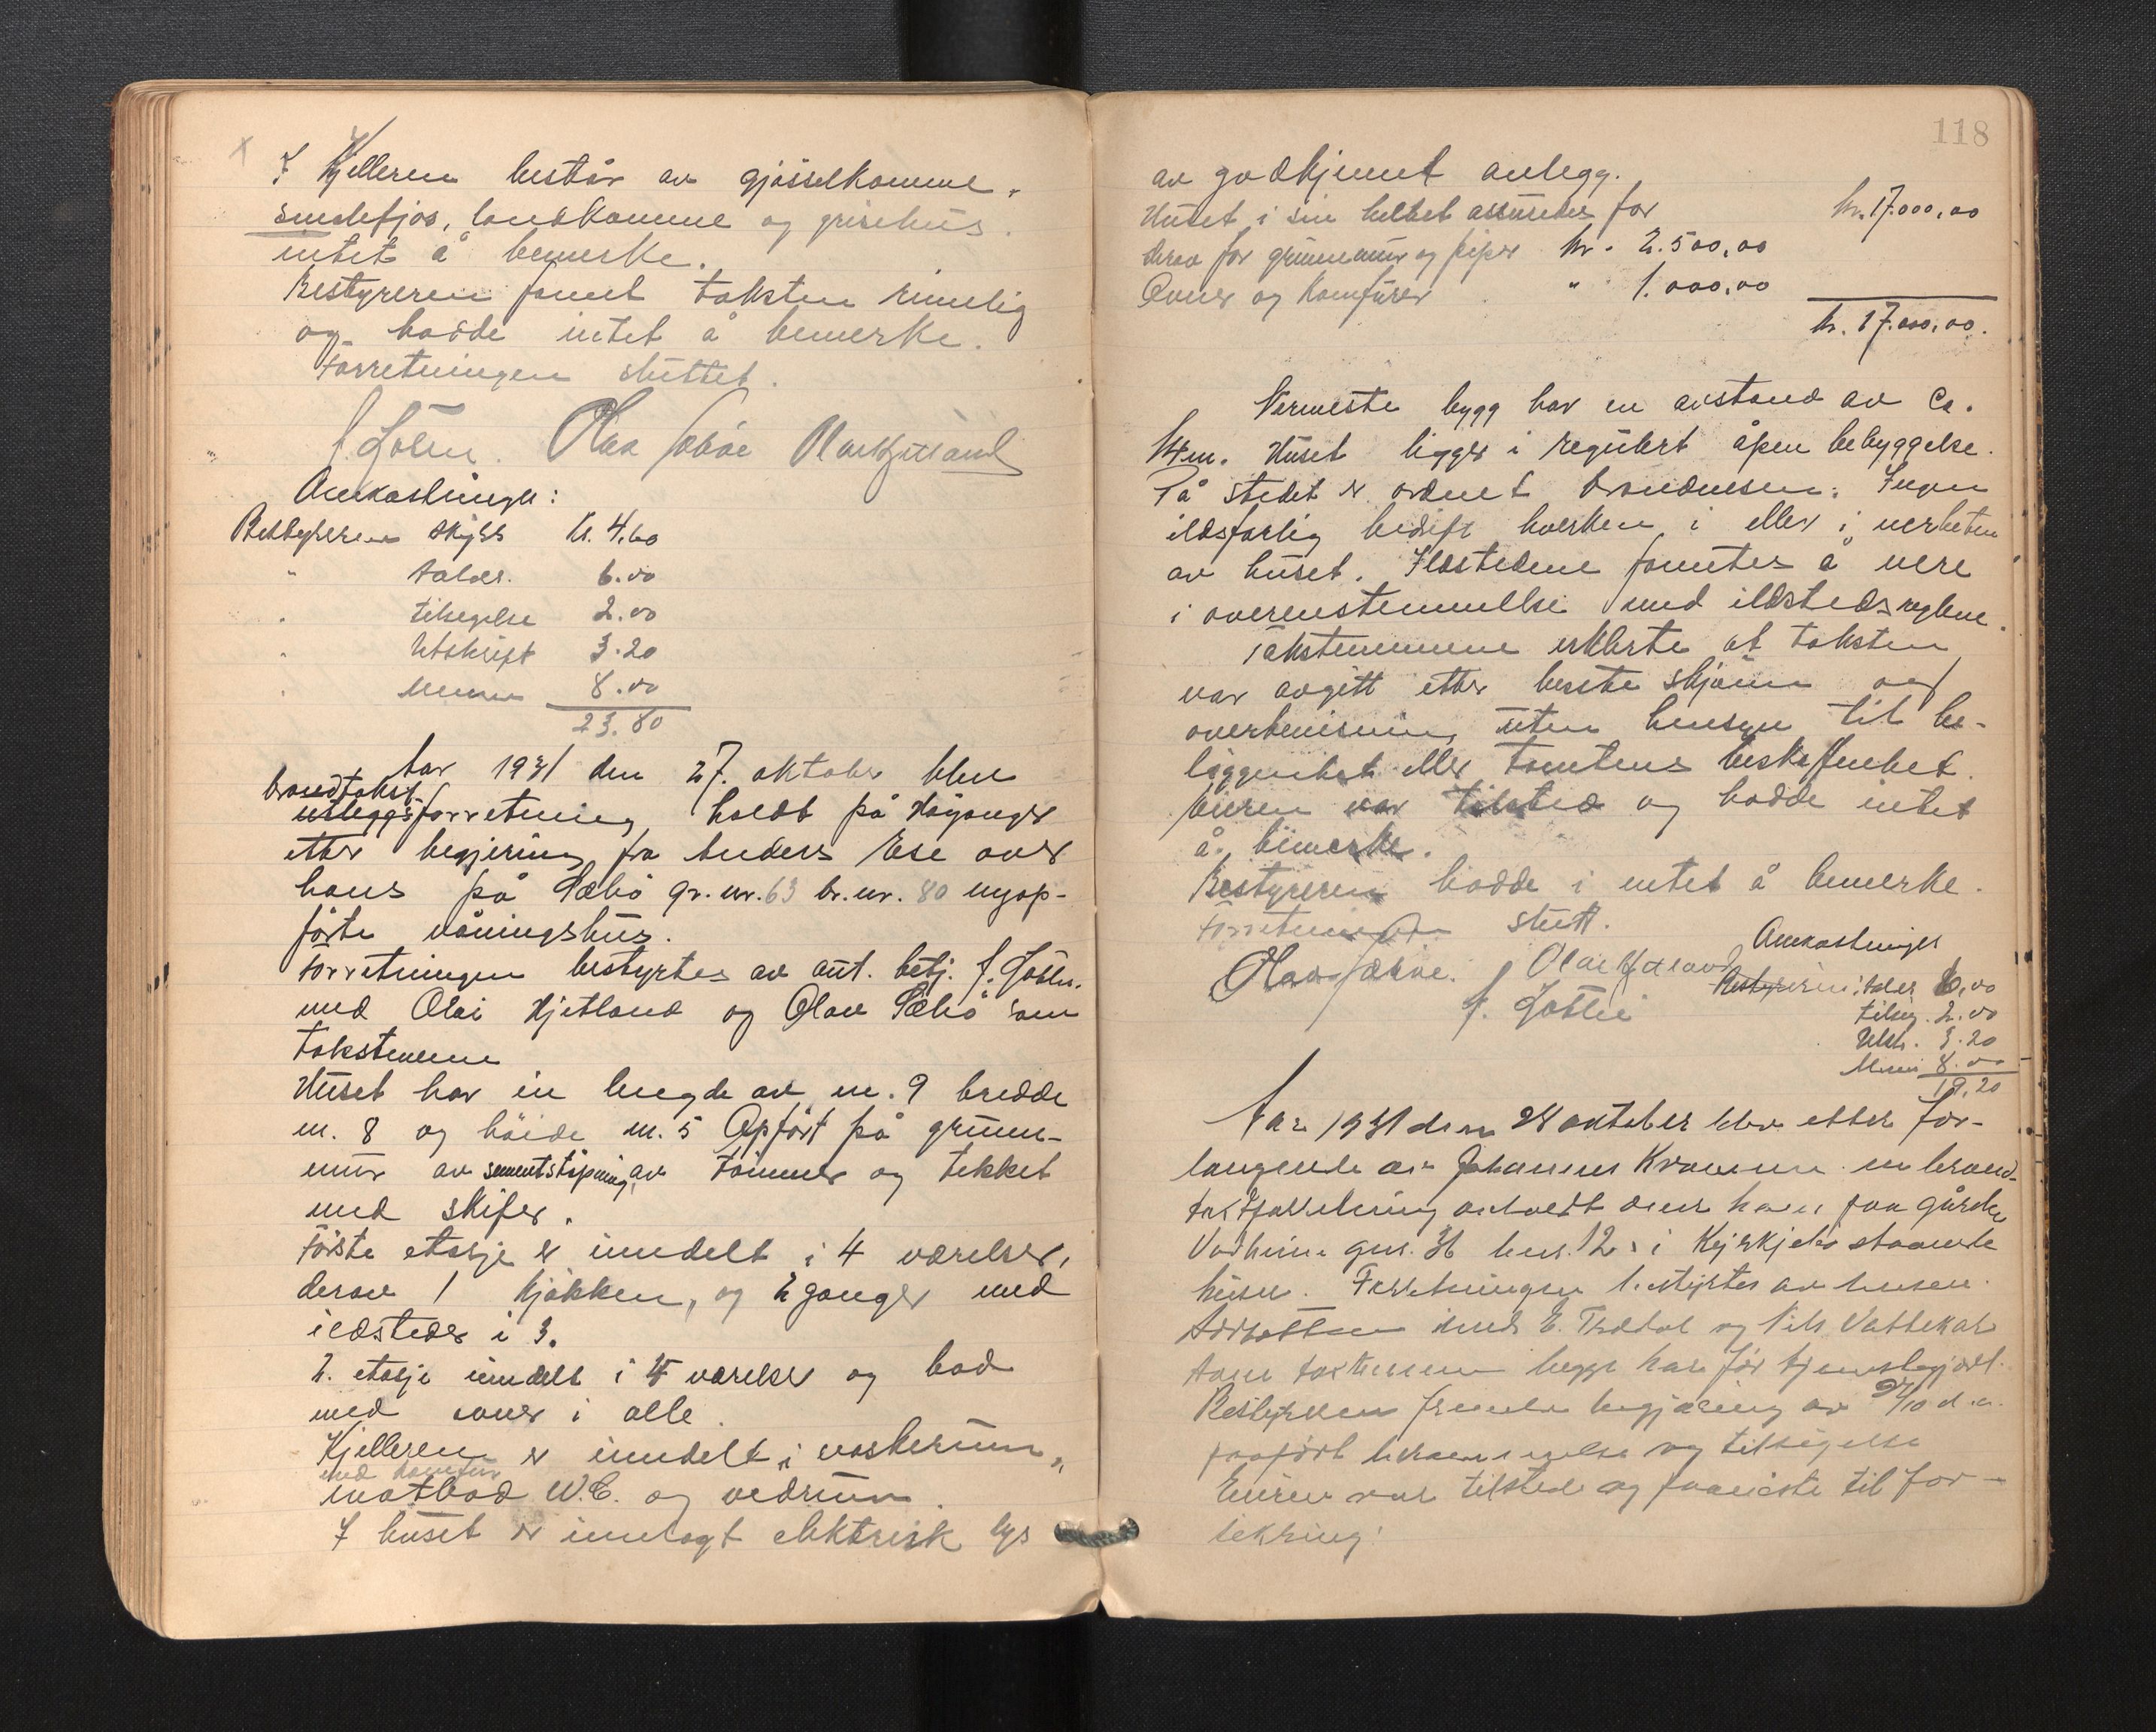 I Kjelleren består av gjødselkomme.
Smalefjos, landkomme og grisehus.
intet å bemerke.
Bestyreren fannt taksten rimelig
og hadde intet å bemerke.
Forretningen sluttet.
Olav Sæbøe Olai Hjetland
Omkostninger:
Bestyreren skyss Kr. 4.60
" 6.00
" tilsigelse 2.00
" Utskrift 3.20
" 8.00
23.80
Aar 1931 den 27. oktober blev
brandtakst
utleggsforretning holdt på Høyanger
etter begjæring fra Anders Ese over
hans på Sæbø gr. nr. 63 br. nr. 80 nyop-
førte våningshus.
Forretningen bestyrtes av aut. betj.
med Olai Hjetland og Olav Sæbø som
takstmenn
Huset har en lengde av m. 9 bredde
m. 8 og høide m. 5 Opført på grunn-
mur av sementstøpning, av tømmer og tekket
med skifer.
Første etasje er inndelt i 4 værelser,
derav 1 kjøkken, og 2 ganger med
ildsteder i 3.
2. etasje inndelt i 4 værelser og bad
med ovner i alle.
Kjelleren er inndelt i vaskerum,
med komfur
matbod W.C. og vedrum.
I huset er innlagt elektrisk lys
118
av godkjennt anlegg.
Huset i sin helhet assureres for kr. 17.000,00
derav for grunnmur og piper kr. 2.500,00
Ovner og Komfurer " 1.000,00
kr. 17.000,00.
Nermeste bygg har en avstand av ca.
14 m. Huset ligger i regulert åpen bebyggelse.
På stedet er ordnet brandvesen. Ingen
ildsfarlig bedrift hverken i eller i nerheten
av huset. Ildstedene fanntes å vere
i overenstemmelse med ildstedsreglene.
Takstmennene erklerte at taksten
var avgitt etter beste skjønn og
overbevisning uten hensyn til be-
liggenhet eller tomtens beskaffenhet.
Eieren var tilsted og hadde intet
å bemerke.
Bestyreren hadde i intet å bemerke.
Forretningen slutt.
Omkostninger
Olav Sæbøe. Olai Hjetland
Bestyreren: 6,00
Tilsig. 2.00
Utskr. 3.20
8.00
19.20
Aar 1931 den 28 oktober blev efter for-
langende av Johannes Kvamme en brand-
takstforretning avholdt over hans paa gården
Vadheim gnr. 36 bnr. 12 i Kyrkjebø staaende
huser. Forretningen bestyrtes av lensm.
med E. Tredal og Nils Vattekar
som takstmenn begge har før tjenestegjort
Bestyreren fremla begjæring av 27/10 d.a.
paaført berammelse og tilsigelse
Eieren var tilstede og paaviste til for-
sikring: